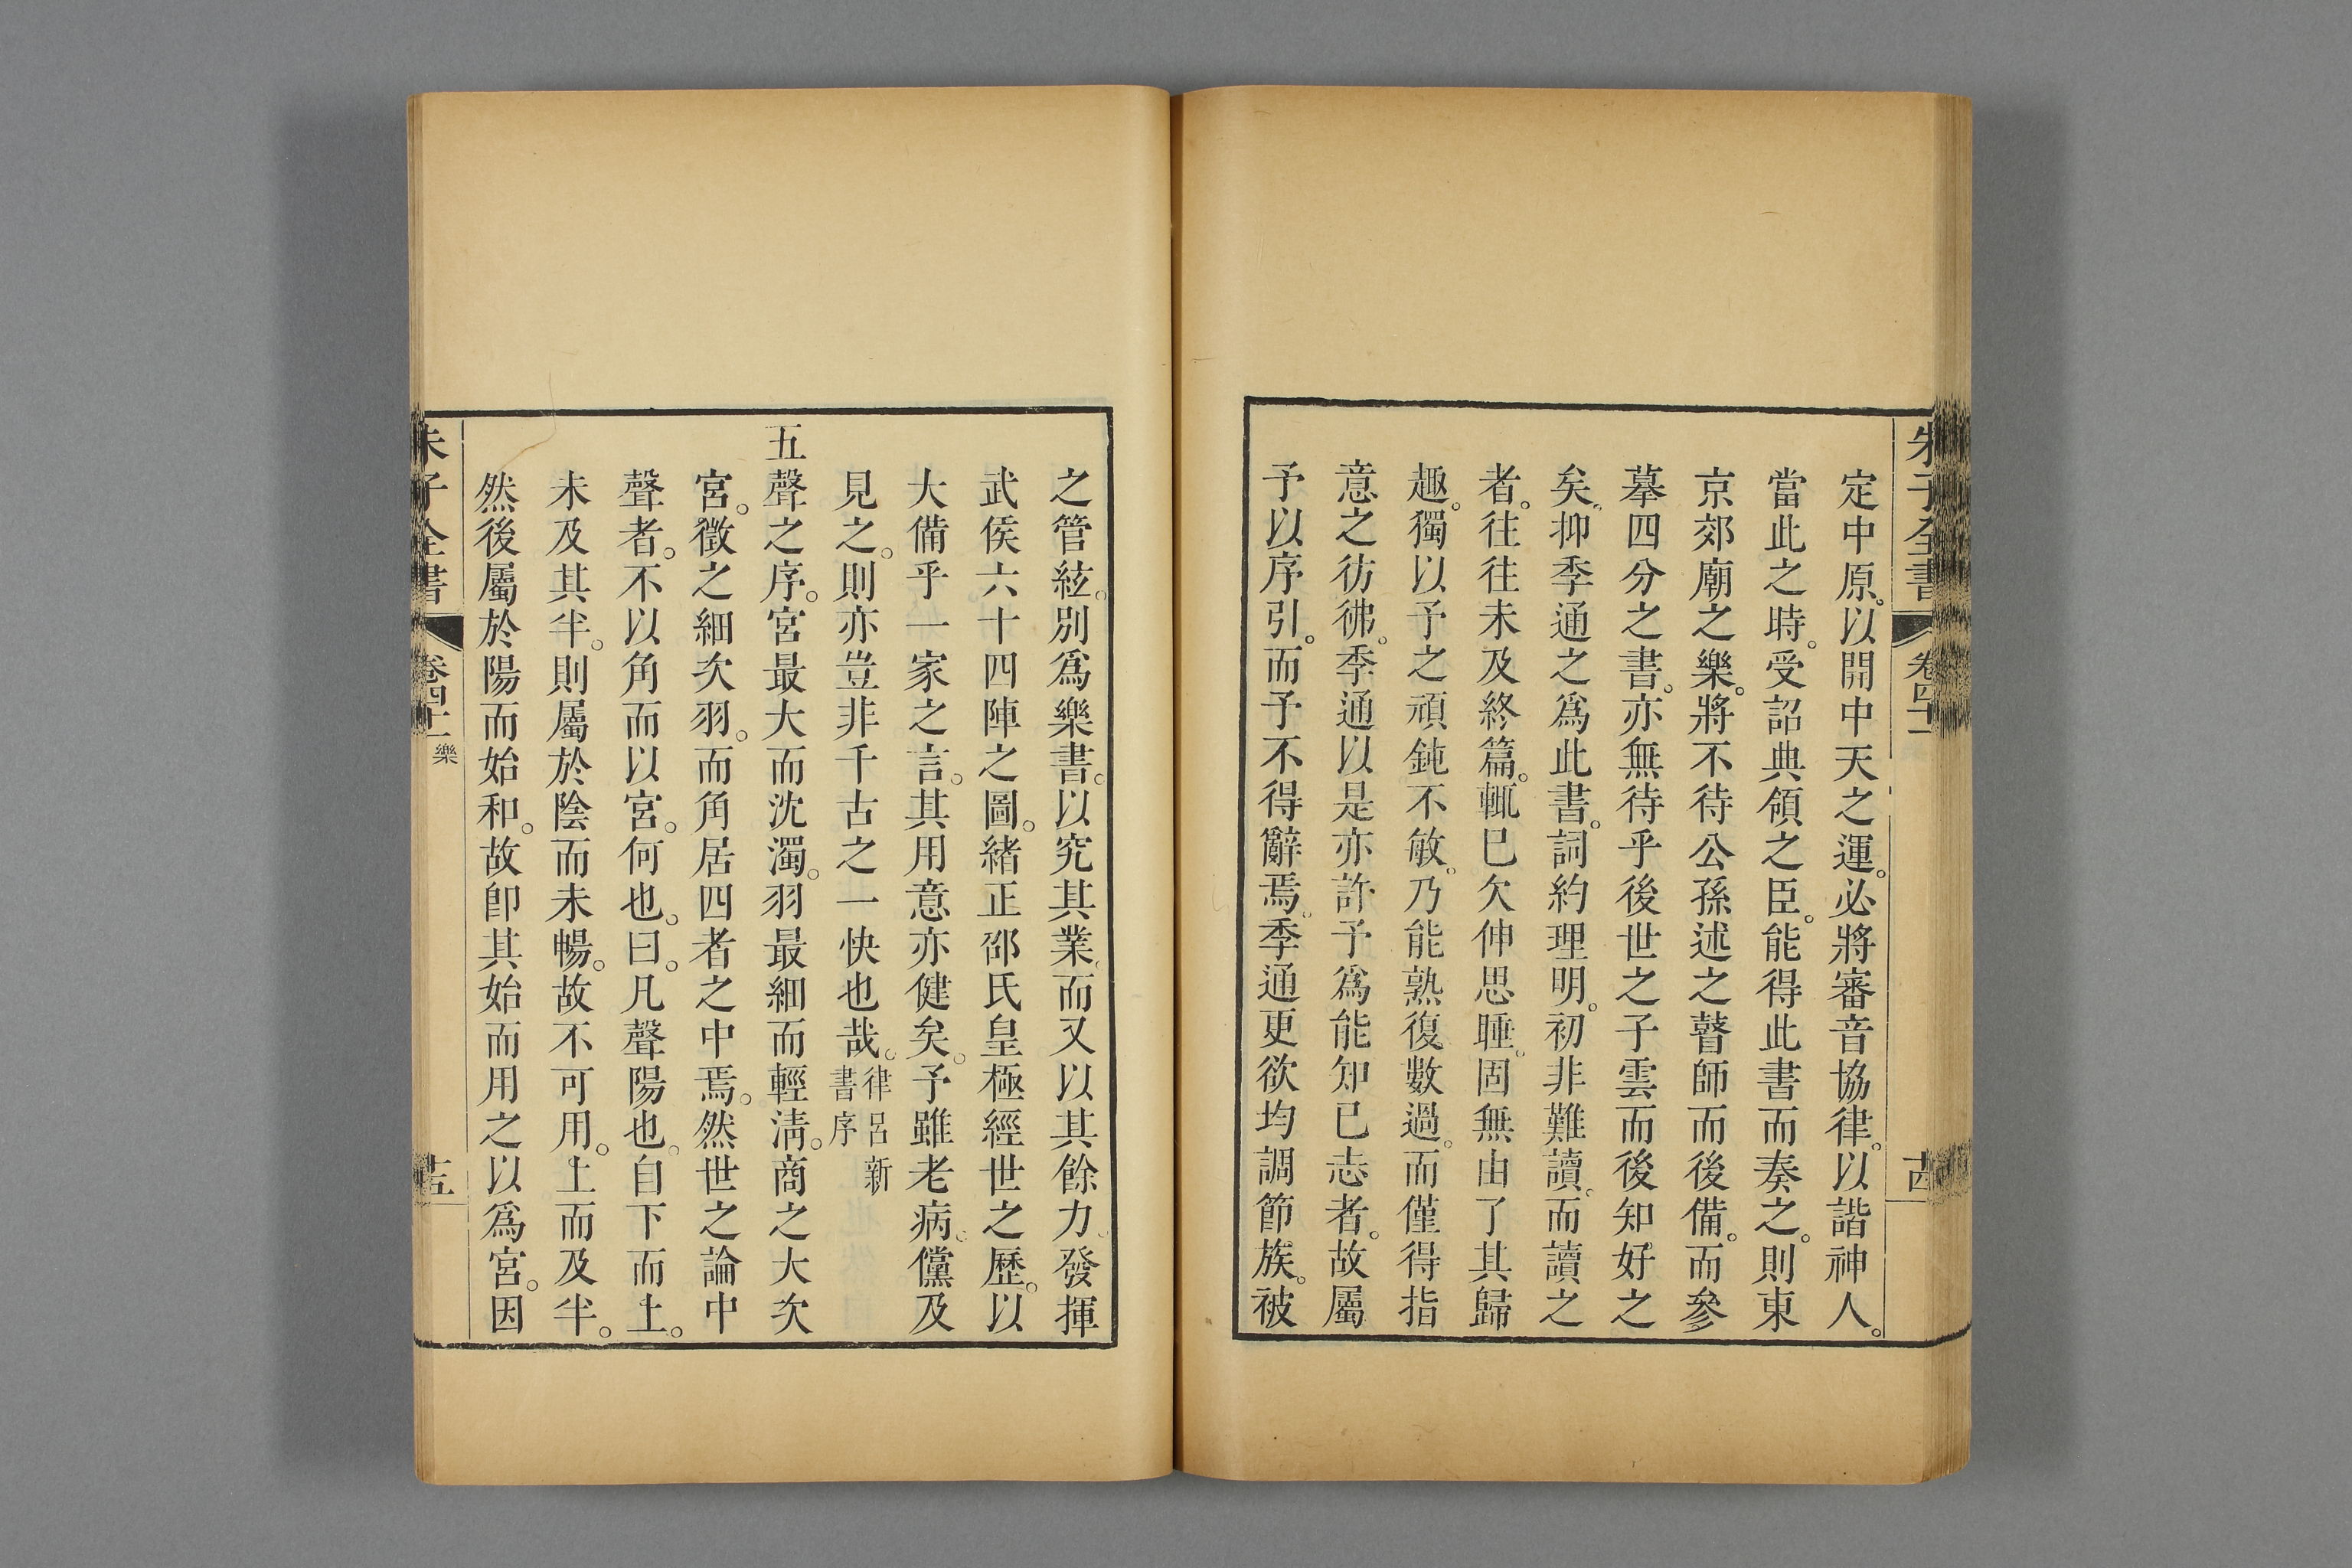 朱子全書 卷四十一 十四
定中原。以開中天之運。必將審音協律。以諧神人。
當此之時。受詔典領之臣。能得此書而奏之。則東
京郊廟之樂。將不待公孫述之瞽師而後備。而參
摹四分之書。亦無待乎後世之子雲而後知好之
矣。抑季通之爲此書。詞約理明。初非難讀。而讀之
者。往往未及終篇。輒已欠伸思睡。固無由了其歸
趣。獨以予之頑鈍不敏。乃能熟復數過。而僅得指
意之彷彿。季通以是亦許予爲能知己志者。故屬
予以序引。而予不得辭焉。季通更欲均調節族。被
之管絃。別爲樂書。以究其業。而又以其餘力。發揮
武侯六十四陣之圖。緒正邵氏皇極經世之歷。以
大備乎一家之言。其用意亦健矣。予雖老病。儻及
見之。則亦豈非千古之一快也哉。律呂新書序
五聲之序。宮最大而沈濁。羽最細而輕淸。商之大次
宮。徵之細次羽。而角居四者之中焉。然世之論中
聲者。不以角而以宮。何也。曰。凡聲陽也。自下而上。
未及其半。則屬於陰而未暢。故不可用。上而及半。
然後屬於陽而始和。故卽其始而用之以爲宮。因
朱子全書 卷四十一 樂 十五